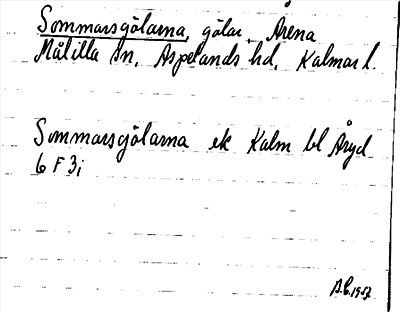 Sommarsgölarna, gölar, Årena
Målilla sn, Aspelands hd, Kalmar l.
Sommarsgölarna ek Kalm bl Åryd
6 F 3i